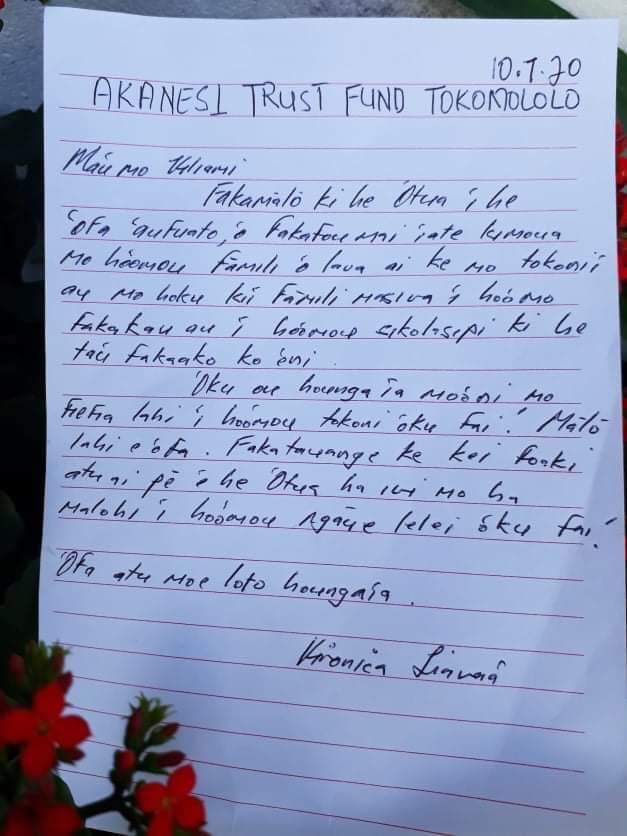 10.7.20
AKANESI TRUST FUND TOKOMOLOLO
Máu mo Viliami
Fakamālō ki he Ótua í he
ófa áufuato, ó fakafou mai íate kimoua
mo hóomou Fāmili ó lava ai ke mo tokonií
au mo hoku kií Fāmili masiva í hóómo
fakakau au í hóómou sikolasipi ki he
taú fakaako ko éni.
Óku ou houngaía moóni mo
fiefia lahi í hóómou tokoni óku fai! Mālō
lahi e ófa. Fakatauange ke kei foaki
atu ai pē é he Ótua ha ivi mo ha
malohi í hoómou ngāue lelei óku fai!
Ófa atu moe loto houngaía.
Vironica